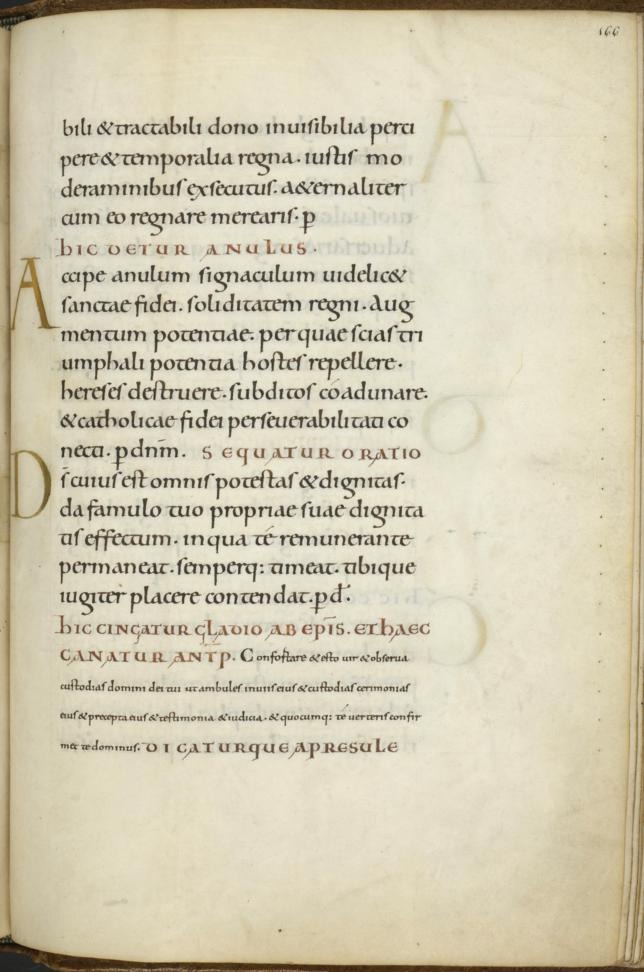 166
bili & tractabili dono inuisibilia perci
pere & temporalia regna. iustis mo
deraminibus exsecutus. a&ernaliter
cum eo regnare merearis. p̄
HIC DETUR ANULUS.
Accipe anulum signaculum uidelic&
sanctae fidei. soliditatem regni. Aug
mentum potentiae. per quae scias tri
umphali potentia hostes repellere.
hereses destruere. subditos cóadunare.
& catholicae fidei perseuerabilitati co
necti. p̄ dnm̄. SEQUATUR ORATIO
Ds̄ cuius est omnis potestas & dignitas.
da famulo tuo propriae suae dignita
tis effectum. in qua té remunerante
permaneat. semperq: timeat. tibique
iugiter placere contendat. p̄ d̄.
HIC CINGATUR GLADIO AB EPĪS. ET HAEC
CANATUR ANTP̄. Confortare & esto uir & obserua
custodias domini dei tui ut ambules in uiis eius & custodias cerimonias
eius & precepta eius & testimonia & iudicia. & quocumq: té uerteris confir
met te dominus. DICATURQUE A PRESULE